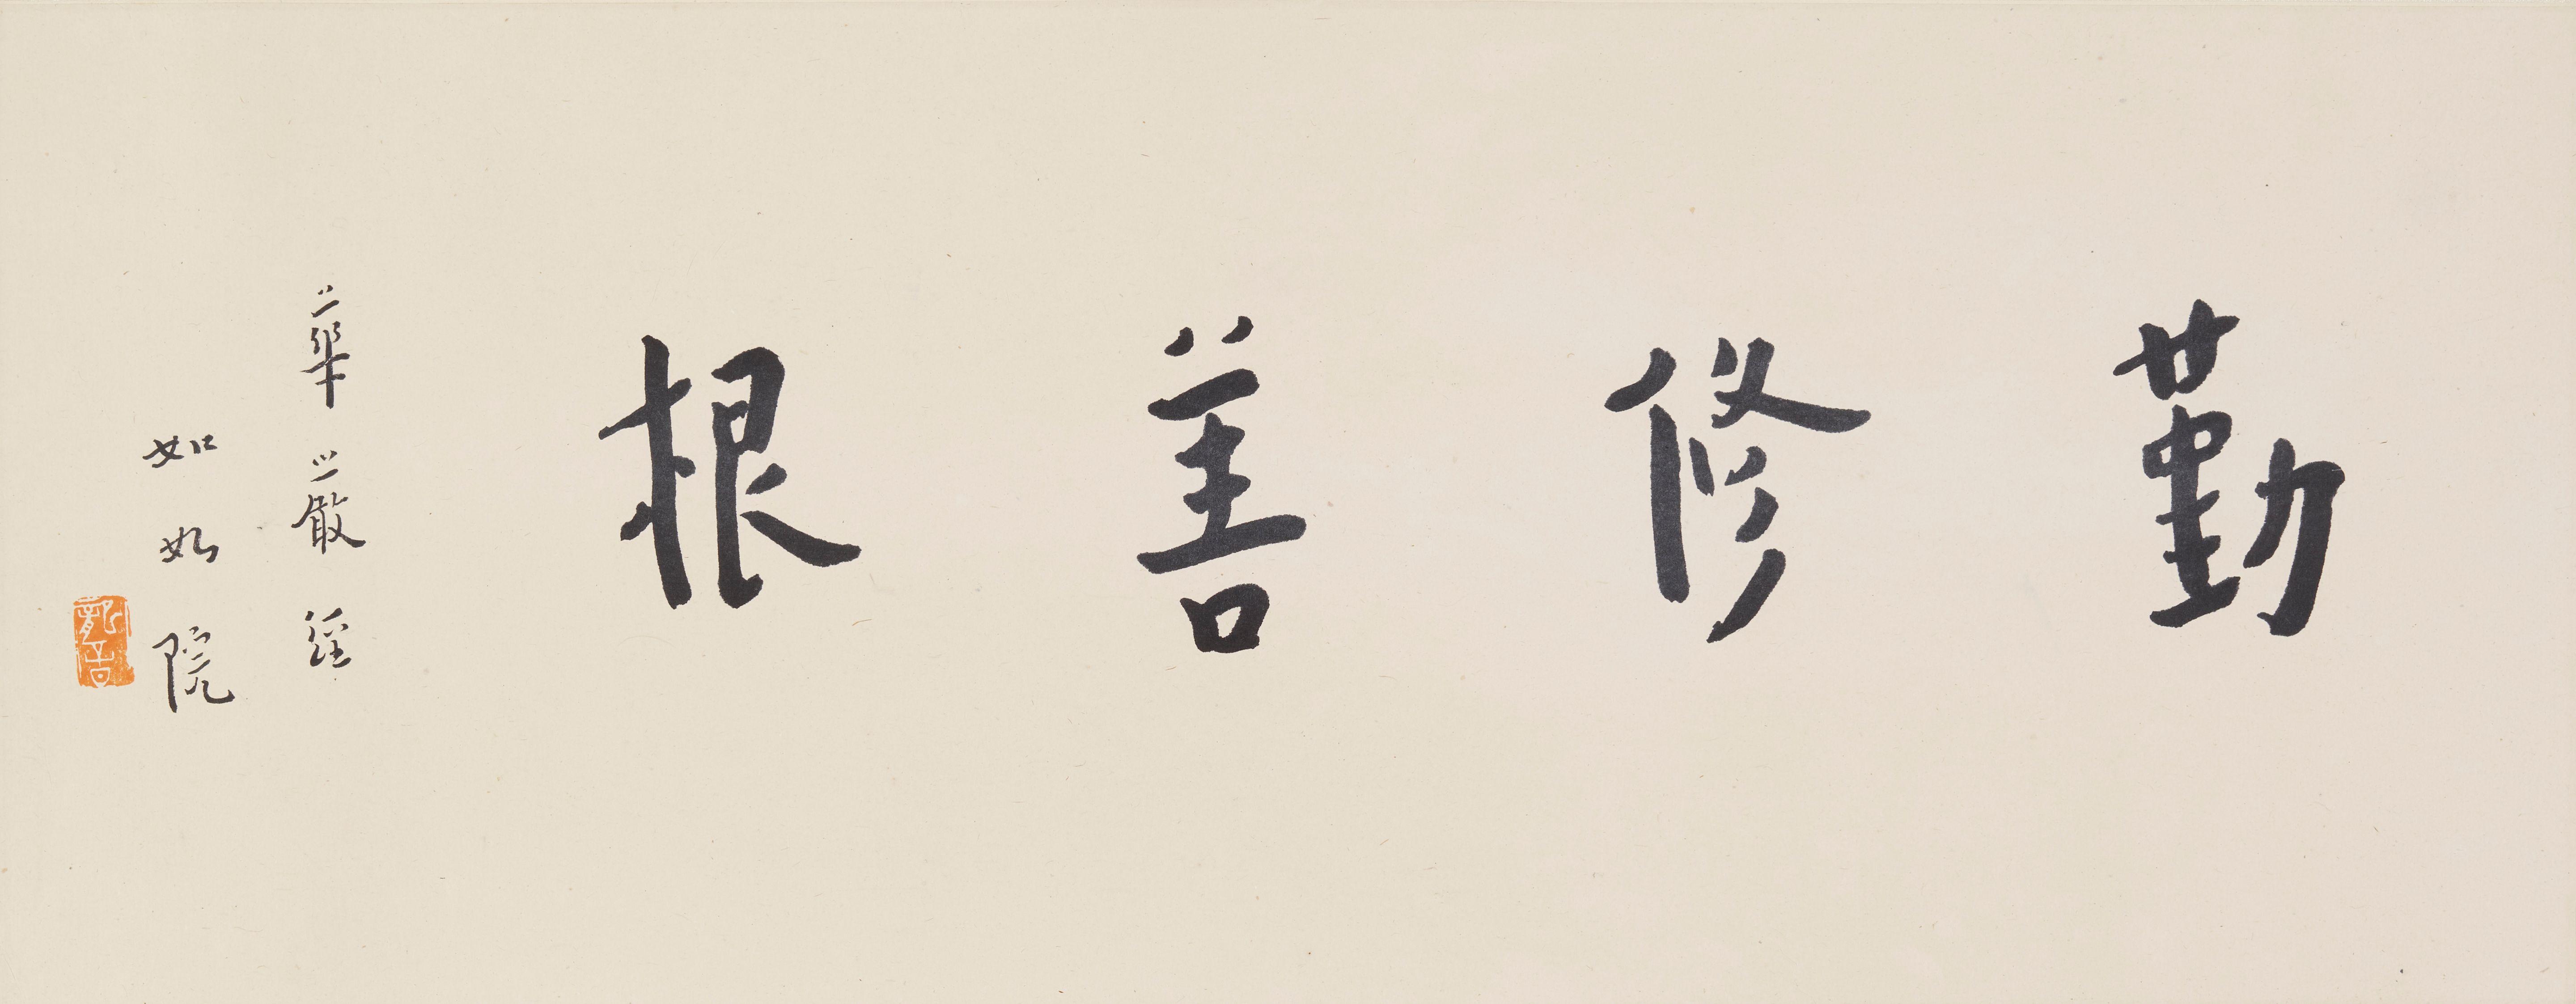 勤修善根
華嚴經
如如院